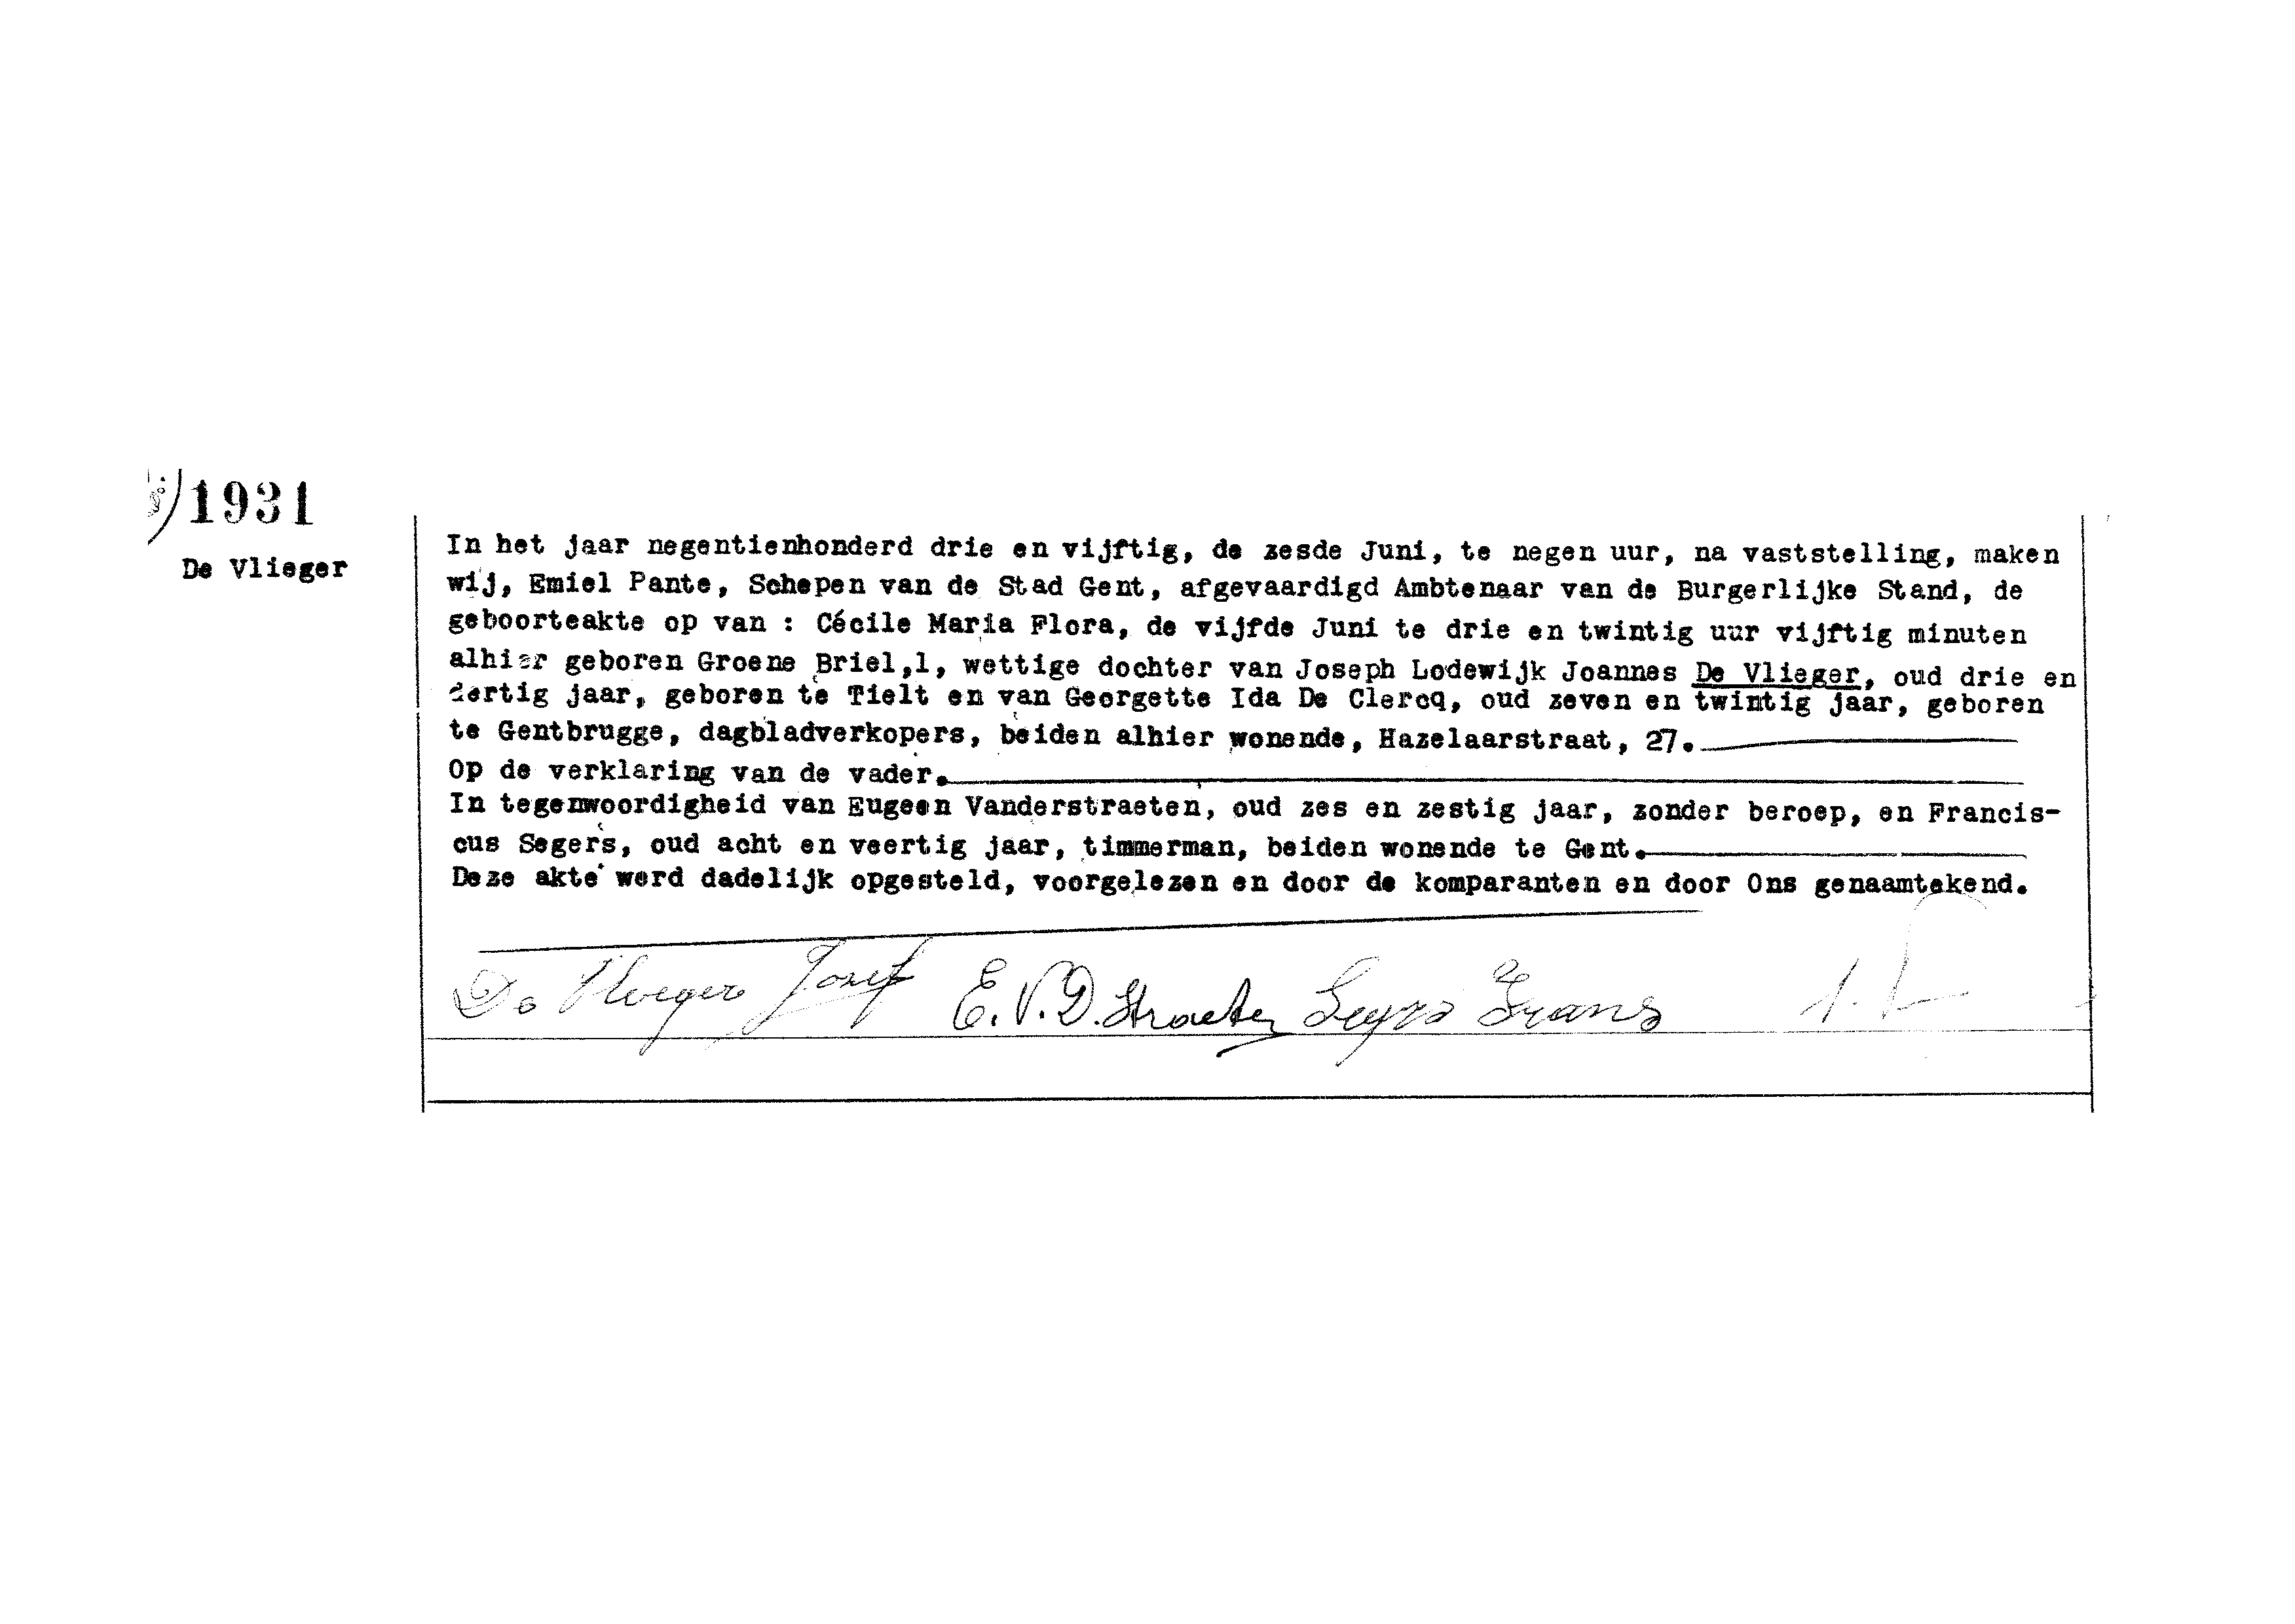 1931
De Vlieger
In het jaar negentienhonderd drie en vijftig, de zesde Juni, te negen uur, na vaststelling, maken
wij, Emiel Pante, Schepen van de Stad Gent, afgevaardigd Ambtenaar van de Burgerlijke Stand, de
geboorteakte op van : Cécile Maria Flora, de vijfde Juni te drie en twintig uur vijftig minuten
alhier geboren Groene Briel,1, wettige dochter van Joseph Lodewijk Joannes De Vlieger, oud drie en
dertig jaar, geboren te Tielt en van Georgette Ida De Clercq, oud zeven en twintig jaar, geboren
te Gentbrugge, dagbladverkopers, beiden alhier wonende, Hazelaarstraat, 27.
Op de verklaring van de vader.
In tegenwoordigheid van Eugeen Vanderstraeten, oud zes en zestig jaar, zonder beroep, en Francis-
cus Segers, oud acht en veertig jaar, timmerman, beiden wonende te Gent.
Deze akte werd dadelijk opgesteld, voorgelezen en door de komparanten en door Ons genaamtekend.
De Vlieger Jozef E.V.D.Straeten Segers Frans